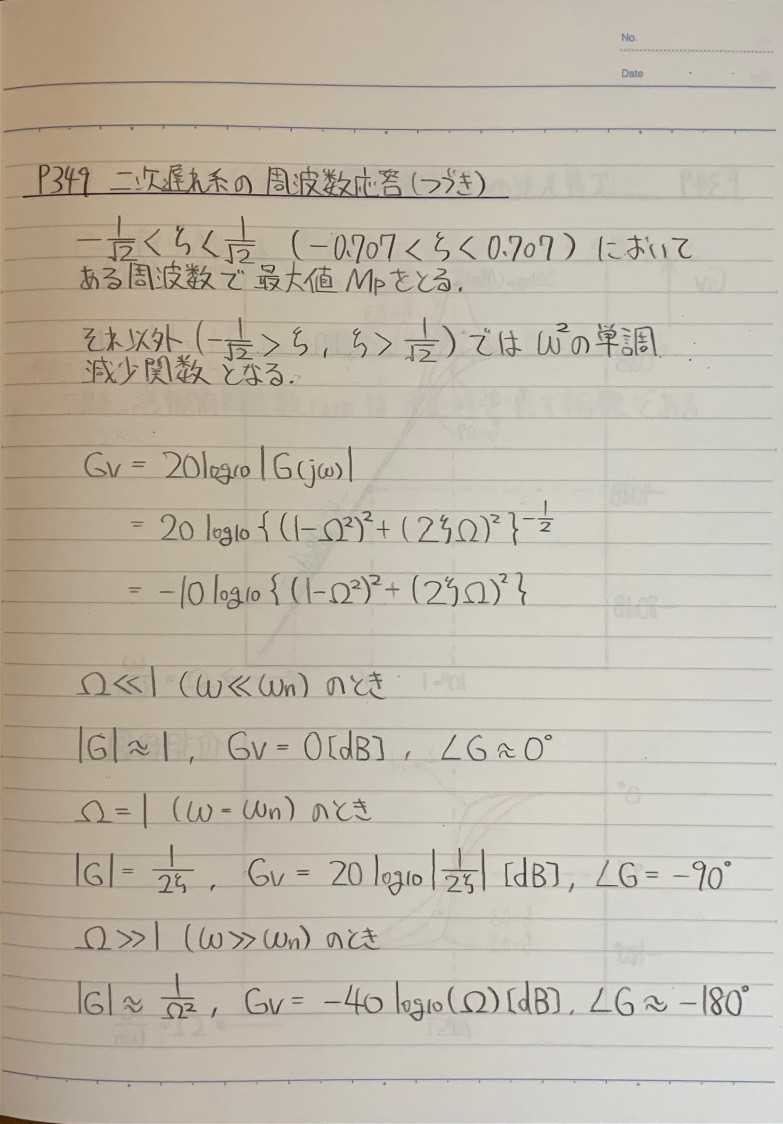 No.
Date
P349 二次遅れ系の周波数応答(つづき)
-1/√2 < ζ < 1/√2 (-0.707 < ζ < 0.707) において
ある周波数で最大値 Mpをとる.
それ以外 (-1/√2 > ζ, ζ > 1/√2) では ω²の単調
減少関数となる.
Gv = 20log10|G(jω)|
= 20 log10{(1-Ω²)²+(2ζΩ)²}^-1/2
= -10 log10{(1-Ω²)²+(2ζΩ)²}
Ω≪1 (ω≪ωn) のとき
|G|≈1, Gv = 0[dB], ∠G≈0°
Ω=1 (ω=ωn) のとき
|G|= 1/2ζ, Gv = 20 log10|1/2ζ| [dB], ∠G = -90°
Ω≫1 (ω≫ωn) のとき
|G|≈ 1/Ω², Gv = -40 log10(Ω)[dB], ∠G ≈ -180°